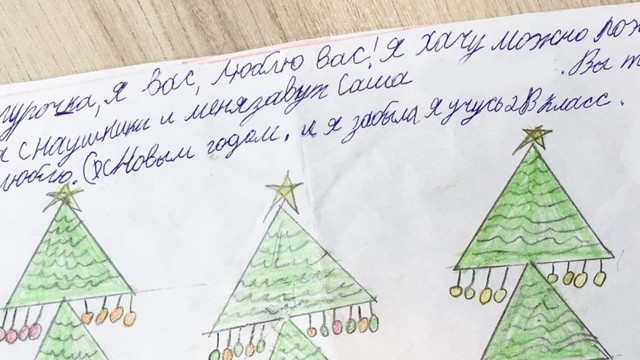 гурочка, я вас, люблю вас! Я хачу можно
с наушники и менязавут Саша . Вы
люблю. С Новым годом. и я забыла я учусь 2В класс.